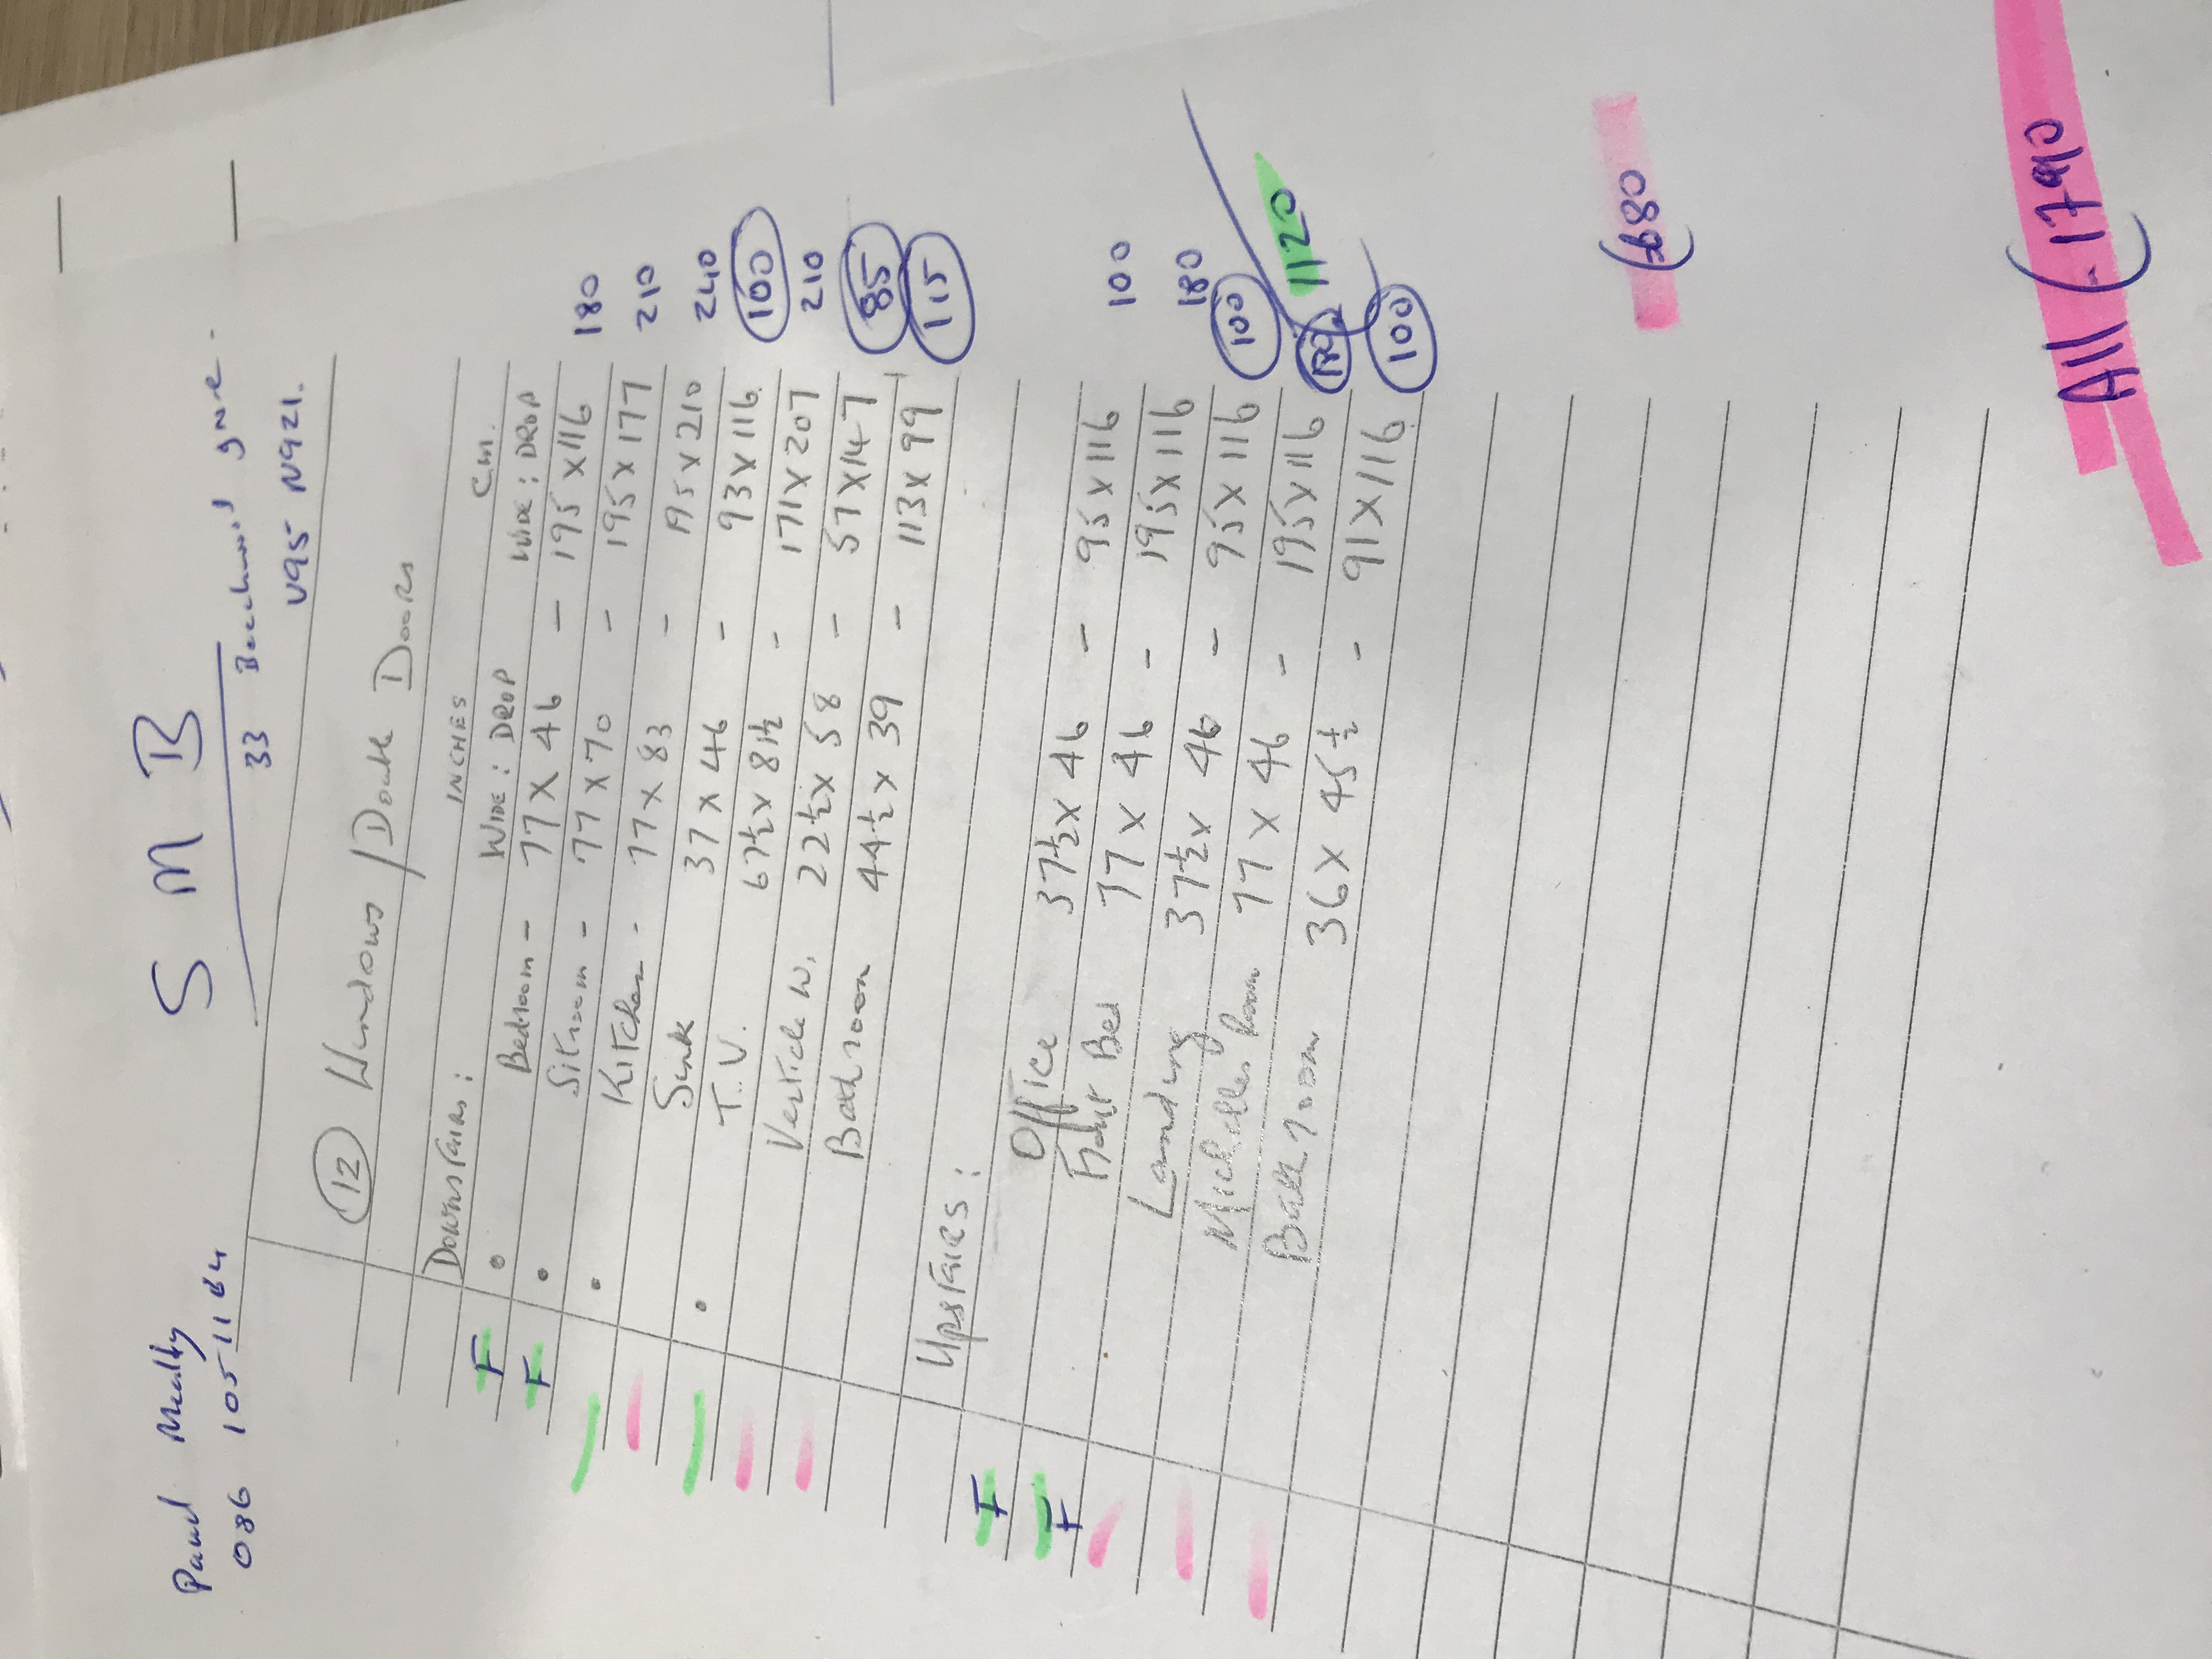 Paul Meally
086 105 1164
S M B
33 Beechwood gve.
V95 N921.
12 Windows / Double Doors
INCHES cm.
Downstairs: WIDE: DROP WIDE: DROP
F Bedroom - 77 X 46 - 195 X 116 180
F Sitroom - 77 x 70 - 195 x 177 210
Kitchen - 77 x 83 - 195 x 210 240
Sink 37 x 46 - 93 x 116. 100
T.V. 67½ x 81½ - 171 x 207 210
Verticle W. 22½ x 58 - 57 x 147 85
Bathroom 44½ x 39 - 113 x 99 115
Upstairs:
F Office 37½ x 46 - 95 x 116 100
F Front Bed 77 x 46 - 195 x 116 180
Landing 37½ x 46 - 95 x 116 100
Michelles Room 77 x 46 - 195 x 116 1120
Bathroom 36 x 45½ - 91 x 116 100
(680)
All (-1790)